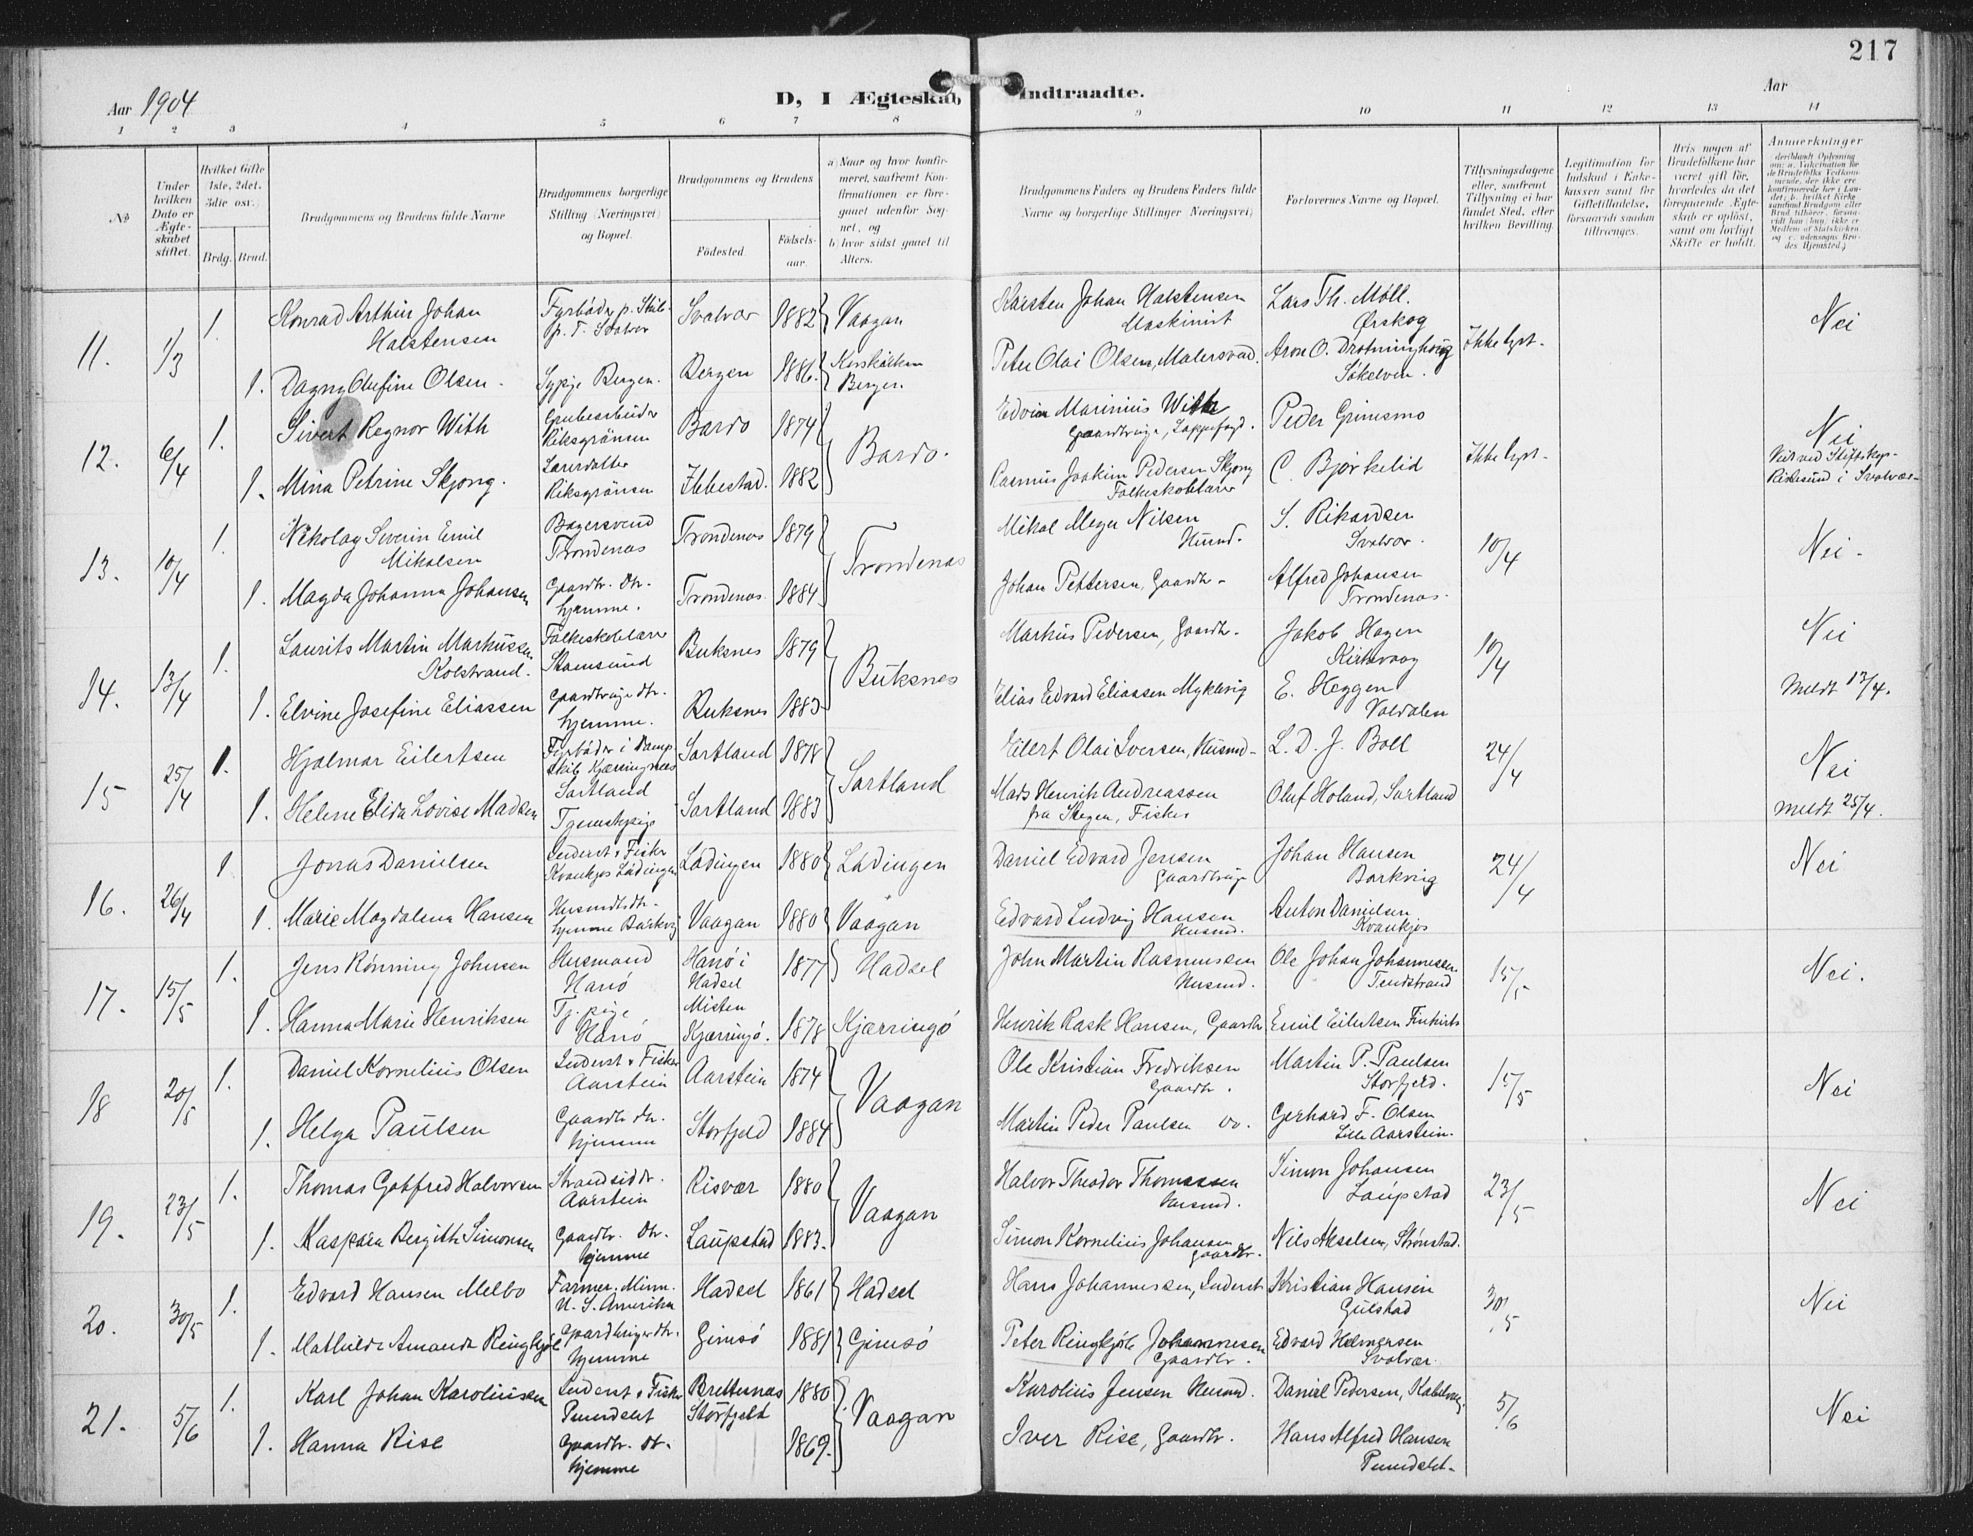 217
Aar 1904
D, I Ægteskab Indtraadte.
Aar
1 2 3 4 5 6 7 8 9 10 11 12 13 14
№
Under hvilken Dato er Ægteskabet stiftet.
Hvilket Gifte 1ste, 2det, 3die osv.
Brdg. Brud.
Brudgommens og Brudens fulde Navne
Brudgommens borgerlige Stilling (Næringsvei) og Bopæl.
Brudgommens og Brudens
Födested
Födsels-aar.
a) Naar og hvor konfirmeret, saafremt Konfirmationen er foregaaet udenfor Sognet, og
b) hvor sidst gaaet til Alters.
Brudgommens Faders og Brudens Faders fulde Navne og borgerlige Stillinger (Næringsvei)
Forlovernes Navne og Bopæl.
Tillysningsdagene eller, saafremt Tillysning ei har fundet Sted, efter hvilken Bevilling.
Legitimation for Indskud i Enkekassen samt for Giftetilladelse, forsaavidt saadan tiltrænges.
Hvis nogen af Brudefolkene har været gift för, hvorledes da det foregaaende Ægteskab er oplöst, samt om lovligt Skifte er holdt.
Anmerkninger
11. 1/3 1. Konrad Arthur Johan Halstensen Fyrböder p. Skib p. T. Svolvær Svolvær 1882 Vaagan Karsten Johan Halstensen Maskinist Lars Th. Möll. Ørskog Ikke lyst. Nei
1. Dagny Olufine Olsen. Sypige Bergen. Bergen 1886. Korskirken Bergen. Peter Olai Olsen, Malersvend. Aron O. Drotninghaug Sökelven.
12. 6/4 1. Sivert Regnor With Grubearbeider Riksgränsen Bardo 1874 Bardo. Edvin Marinius With Gaardbruger, Lappefogd. Peder Grimsmo Ikke lyst. Nei
1. Mina Petrine Skjong. Lærerdatter Riksgränsen Ibbestad. 1882 Rasmus Joakim Pedersen Skjong Folkeskolelærer C. Bjørkelid
13. 10/4 1. Nikolay Severin Emil Mikalsen Bagersvend Trondenas Trondenas 1879 Trondenas Mikal Meyer Nilsen Husmd. S. Rikardsen Svolvær. 10/4 Nei.
1. Magda Johanna Johansen Gaardbr. Dtr. hjemme. Trondenas. 1884 Johan Pettersen, Gaardbr. Alfred Johansen Trondenas.
14. 13/4 1. Laurits Martin Markussen Kolstrand. Folkeskolelærer Stamsund Buksnes 1879 Buksnes Markus Pedersen, Gaardbr. Jakob Hagen Kirkevaag 10/4 Nei
1. Elvine Josefine Eliassen Gaardbruger dtr. hjemme. Buksnes 1883 Elias Edvard Eliassen Myklevig E. Heggen Valdalen Meldt 13/4.
15 25/4 1. Hjalmar Eilertsen Fyrböder i Dampskib Kjæringnes Sortland Sortland 1878 Sortland Eilert Olai Iversen, Husmd. L. D. J. Boll 24/4 Nei
1. Helene Elida Lovise Madsen Tjenestepige Sortland 1883 Mads Henrik Andreassen fra Stegen, Fisker Oluf Holand, Sortland Meldt 25/4.
16. 26/4 1 Jonas Danielsen Inderst & Fisker Kvankjos Lödingen Lödingen 1880 Lödingen Daniel Edvard Jensen Gaardbruger Johan Hansen Barkvig 24/4 Nei
1. Marie Magdalena Hansen Husmdsdtr. hjemme Barkvig Vaagan 1880 Vaagan Edvard Ludvig Hansen Husmd. Anton Danielsen Kvankjos
17. 15/5 1. Jens Rönning Johnsen Husmand Hanö Hanö i Hadsel 1877 Hadsel John Martin Rasmussen Husmd. Ole Johan Johannessen Tendstrand 15/5 Nei.
1. Hanna Marie Henriksen Tj. pige Hanö Misten Kjærringö. 1878 Kjærringö Henrik Rask Hansen, Gaardbr. Emil Eilertsen
18 20/5 1. Daniel Kornelius Olsen Inderst & Fisker Aarstein Aarstein 1874 Vaagan Ole Kristian Fredriksen Gaardbr. Martin P. Paulsen Storfjeld. 15/5 Nei
1. Helga Paulsen Gaardbr. dtr. hjemme Storfjeld 1884 Martin Peder Paulsen do. Gerhard F. Olsen Lille Aarstein.
19. 23/5 1. Thomas Gotfred Halvorsen Strandsidder. Aarstein Risvær 1880 Vaagan Halvor Theodor Thomassen Husmd. Simon Johansen Laupstad 23/5 Nei
1. Kaspara Bergitte Simonsen Gaardbr. Dtr. hjemme Laupstad 1883. Simon Kornelius Johansen Gaardbr. Nils Akselsen, Strönstad.
20. 30/5 1. Edvard Hansen Melbo Farmer, Minn. U. S. Amerika Hadsel 1861 Hadsel Hans Johannessen, Inderst Kristian Hansen Gulstad 30/5 Nei
1. Mathilde Amanda Ringkjöb Gaardbruger dtr. hjemme Gimsö 1881 Gimsö Peter Ringkjöb Johannesen Gaardbr. Edvard Helmersen Svolvær.
21. 5/6 1. Karl Johan Karoliussen Inderst & Fisker Pundslet Brettesnes Storfjeld 1880 Vaagan Karolius Jensen Husmd. Daniel Pedersen, Kabelvaag. 5/6 Nei
1. Hanna Rise Gaardbr. dtr. hjemme 1869. Iver Rise, Gaardbr. Hans Alfred Hansen Pundslet.